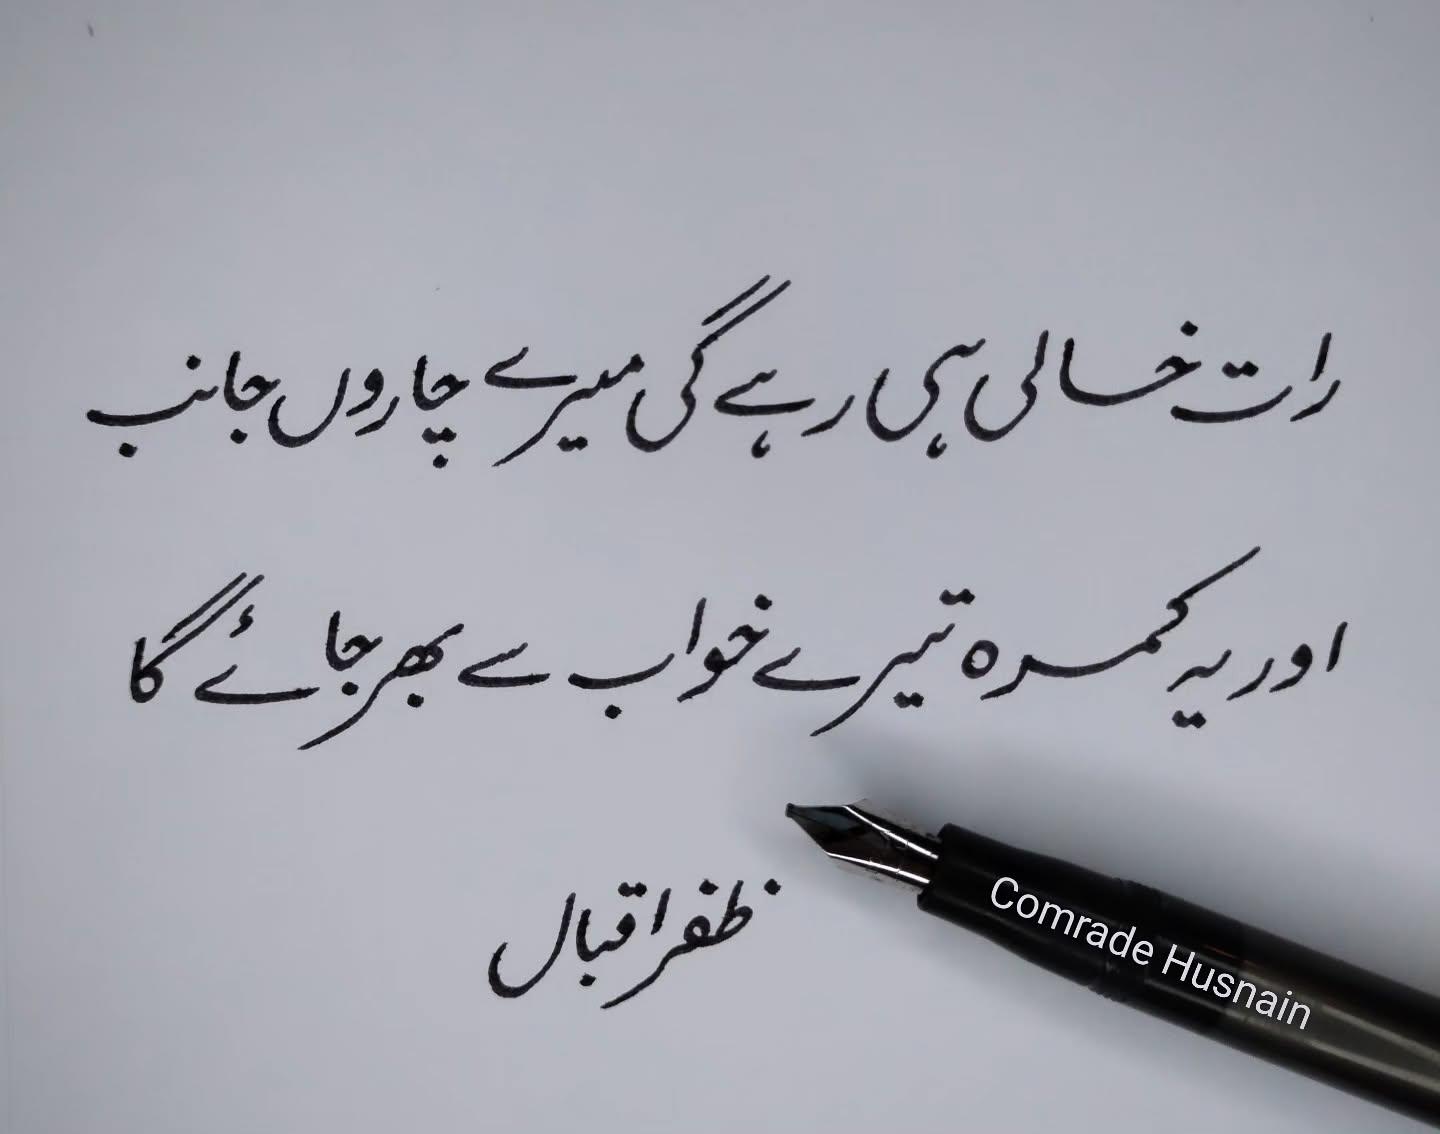 رات خالی ہی رہے گی میرے چاروں جانب
اور یہ کمرہ تیرے خواب سے بھر جائے گا
ظفر اقبال
Comrade Husnain